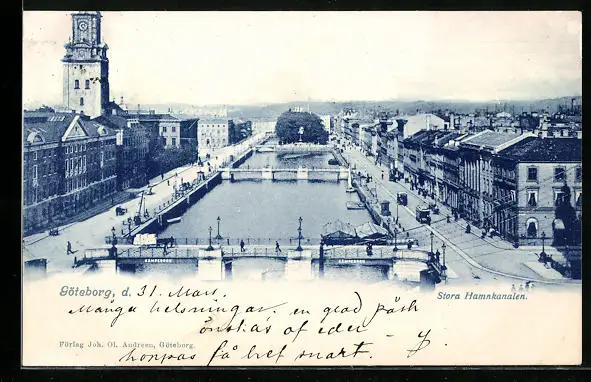 Göteborg, d. 31 Mars.
Stora Hamnkanalen.
Många helsningar. en glad påsk
önskas af eder
Förlag Joh. Ol. Andreen, Göteborg.
hoppas få bref snart. –